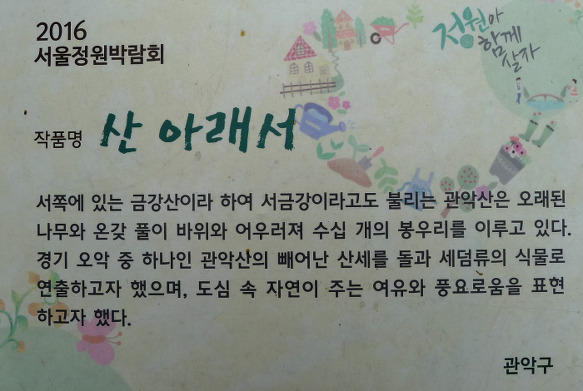 2016
서울정원박람회
정원아
함께
살자
작품명 산 아래서
서쪽에 있는 금강산이라 하여 서금강이라고도 불리는 관악산은 오래된
나무와 온갖 풀이 바위와 어우러져 수십 개의 봉우리를 이루고 있다.
경기 오악 중 하나인 관악산의 빼어난 산세를 돌과 세덤류의 식물로
연출하고자 했으며, 도심 속 자연이 주는 여유와 풍요로움을 표현
하고자 했다.
관악구